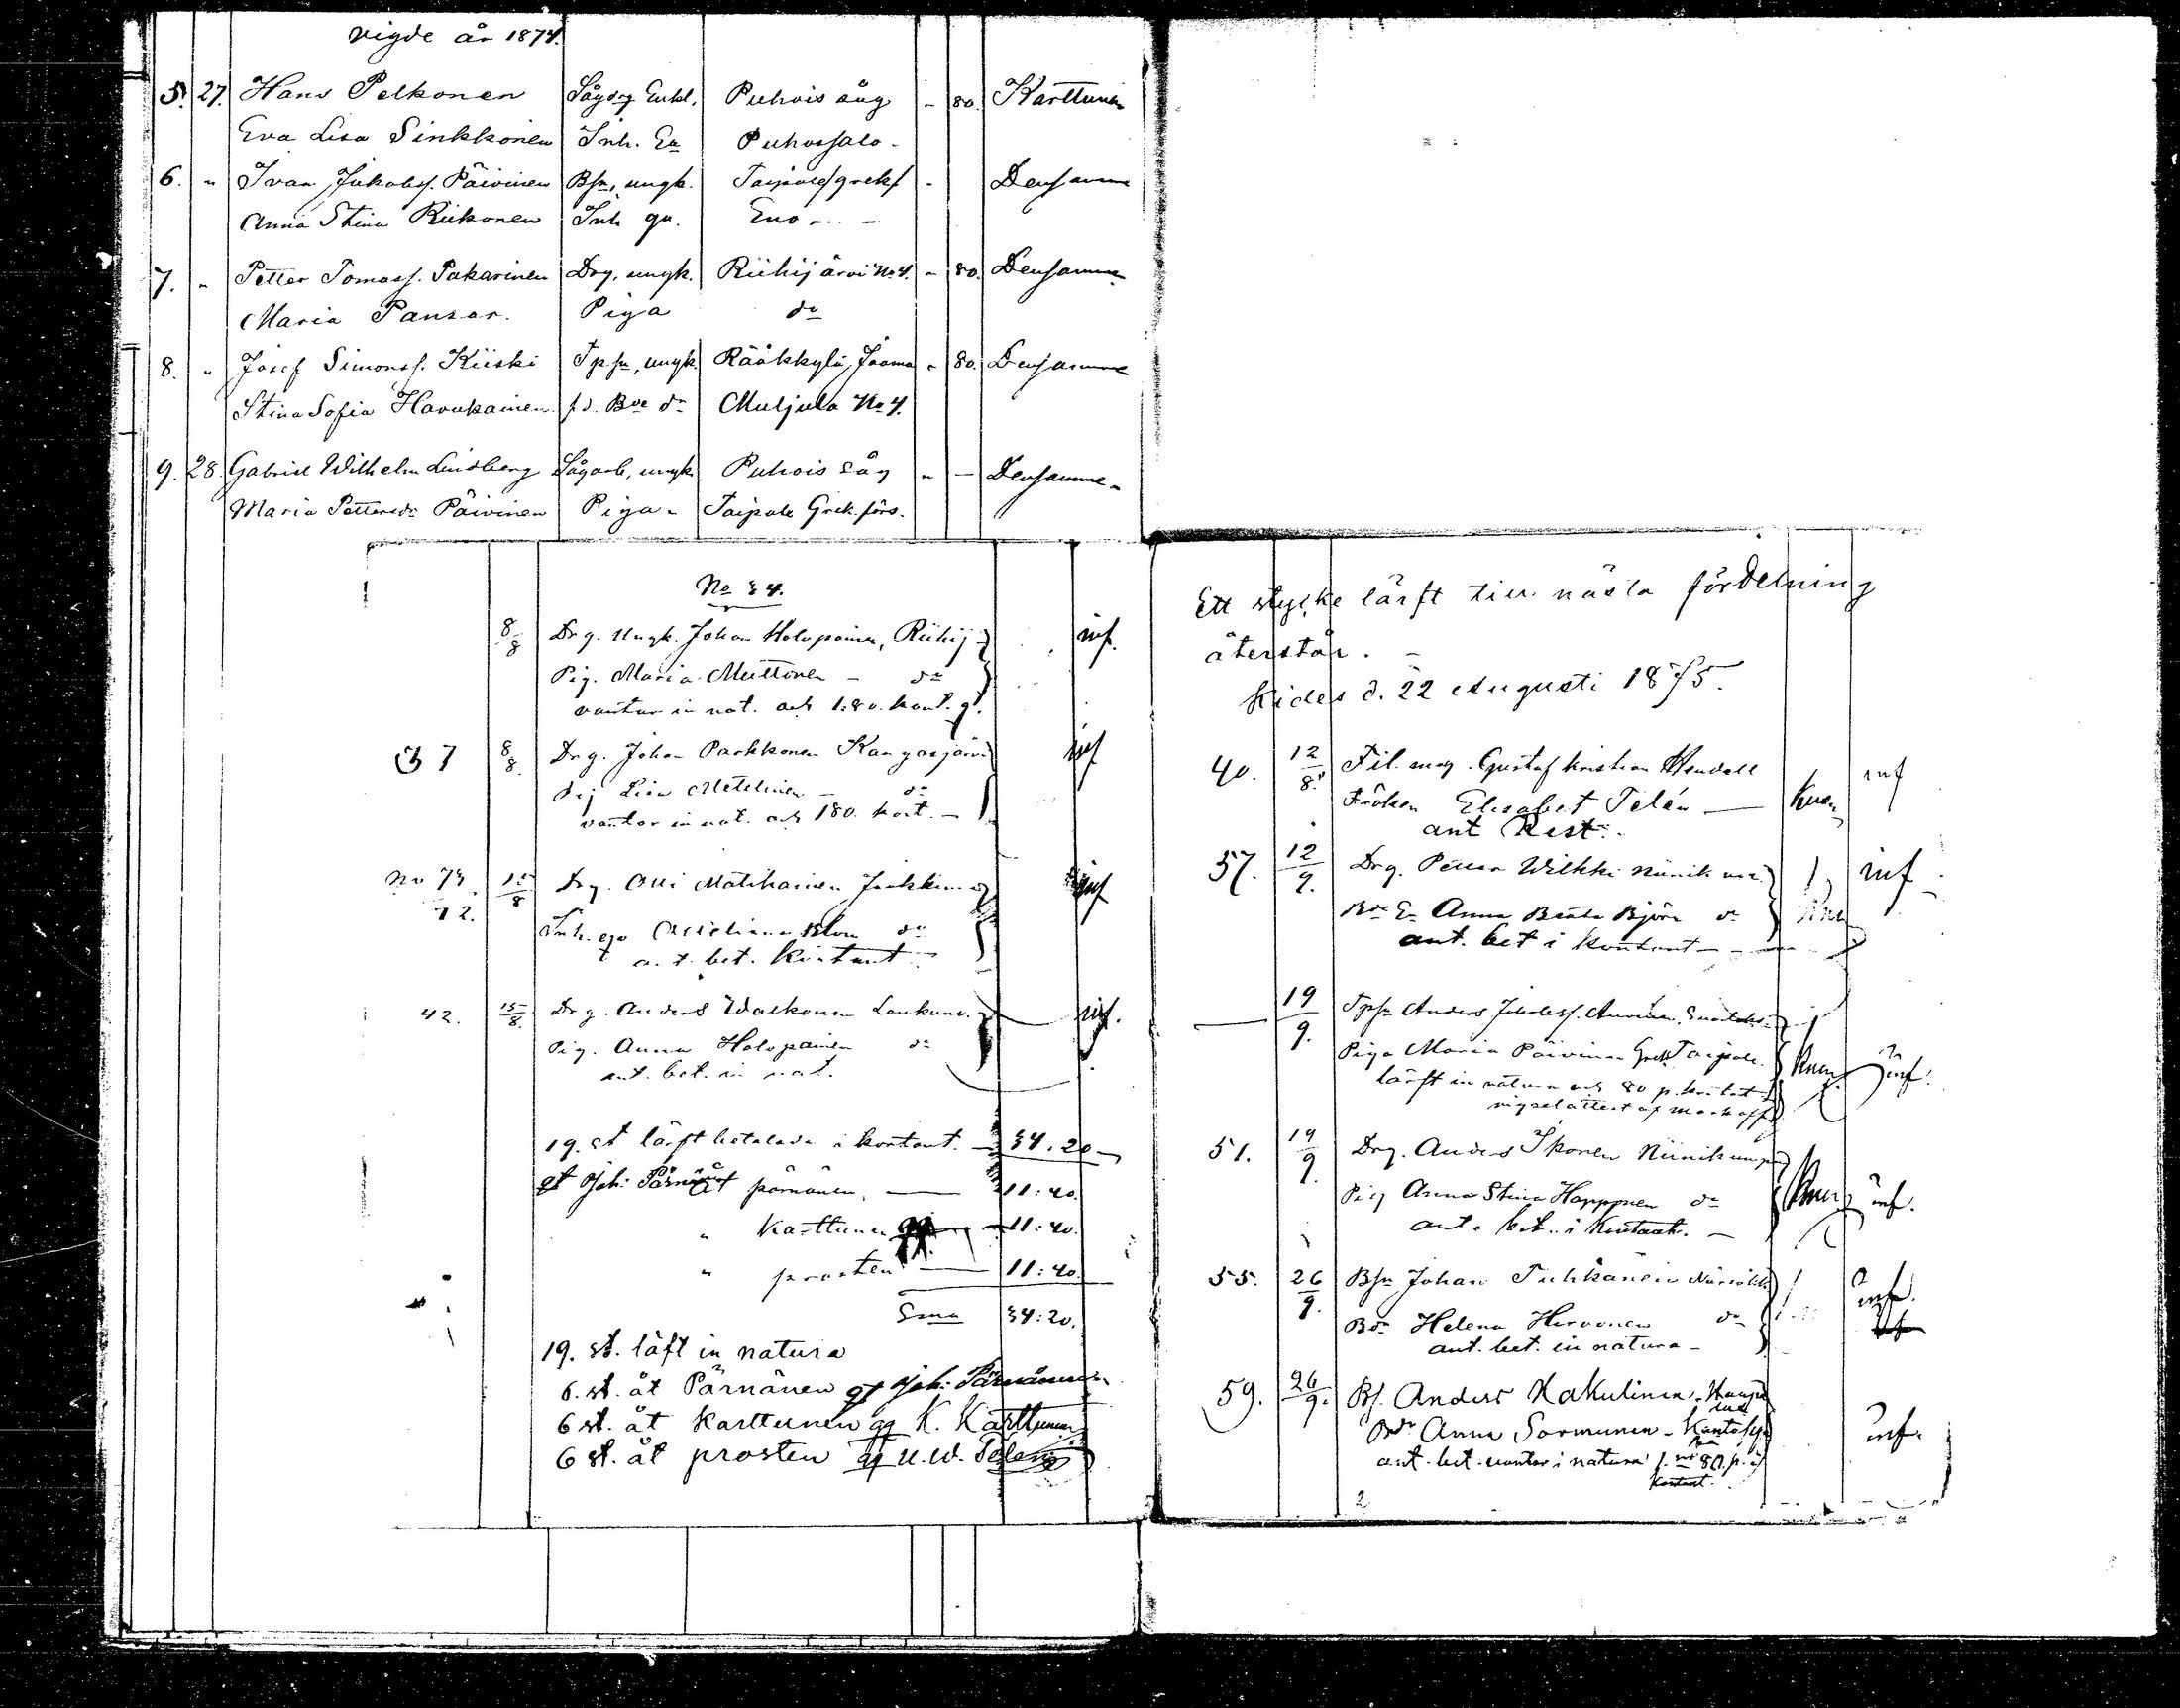 vigde år 1874.
5. 27. Hans Pelkonen Sågdrg Enkl. Puhois såg - 80. Karttunen
Eva Lisa Sinkkonen Inh. Ea Puhossalo -
6. " Ivan Jakobss. Päivinen Bsn, ungk. Taipale grek f - Densamme
Anna Stina Riikonen Inh. gn. Eno - -
7. " Petter Tomass. Pakarinen Drg, ungk. Riihijärvi No 4. - 80. Densamme
Maria Pansar. Piga do
8. " Josef Simonss. Kiiski Tpsn, ungk. Rääkkylä, Jaama - 80. Densamme
Stina Sofia Havukainen f.d. Bde dr Muljula No 4.
9. 28. Gabriel Wilhelm Lindberg Sågarb, ungk. Puhois såg " - Densamme -
Maria Pettersdr Päivinen Piga - Taipale Grek. förs.
No 34.
8/8 Drg. Ungk. Johan Holopainen, Riihij inf.
Pig. Maria Muttonen - dn
vantar in nat. och 1:80. kont. gt.
37 8/8. Drg. Johan Parkkonen Kangasjärvi inf
Pij Lisa - dn
vantar in nat. och 180. kont. -
No 73 15/8 Drg. Olli Matikainen inf
12. Inh. Blom dn
a. t. bet. Kontant -
42. 15/8. Drg. Anders Waskonen Loukunv. inf.
Pig. Anna Holopainen dn
ant. bet. in nat.
19. st lärft betalade i kontant. - 34.20
gt Joh: Pärnän åt pärnänen, - 11:40.
" Karttunen qq - 11:40.
" prosten - 11:40.
Sma 34:20.
19. st. läft in natura
6. st. åt Pärnänen gt Joh: Pärnänen
6 st. åt Karttunen qq K. Karttunen
6 st. åt prosten qq U. W. Telén
Ett stycke lärft till nästa fördelning
återstår. -
Kides d. 22 Augusti 1875.
40. 12/8. Fil. mag. Gustaf Kristian inf
Fröken Elisabet Telén -
ant Rest.
57. 12/9. Drg. Petter Wilkki inf -
Bde Ea Anna Beata Björn dn
ant. bet i kontant - -
19/9. Tpsn Anders Jakobss.
Piga Maria Päivinen Grek Taipale. inf.
lärft in natura och 80 p. kontant
vigselattest af
51. 19/9 Drg. Anders Ikonen
Pig Anna Stina Happonen dn inf.
ant. bet. i Kontant. -
55. 26/9. Bsn Johan Tuhkanen inf.
Bdr Helena Hirvonen dn
ant. bet. in natura -
59. 26/9. Bs. Anders Kakulinen -
Bdr Anna Sormunen - inf.
ant. bet. vantar i natura 1. 80. p. i
Kontant.
2